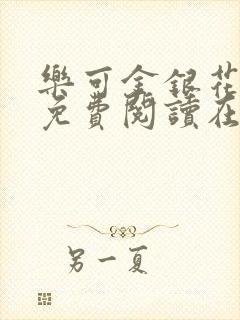 樂可金銀花
免費閱讀在
另一夏